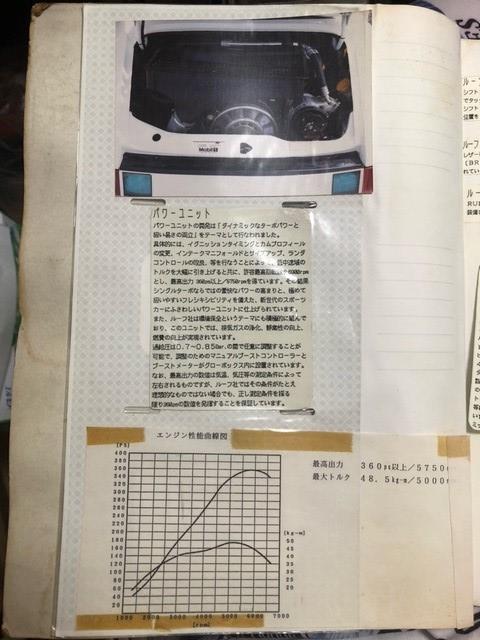 Mobil 1
パワーユニット
パワーユニットの開発は「ダイナミックなターボパワーと
扱い易さの両立」をテーマとして行なわれました。
具体的には、イグニッションタイミングとカムプロフィール
の変更、インテークマニフォールドとサイズアップ、ラムダ
コントロールの改良、等を行なうことによって、中速域の
トルクを大幅に引き上げると共に、許容最高回転数を6800rpm
とし、最高出力 360ps以上/5750rpmを得ています。その結果
シングルターボならではの豪快なパワーの高まりと、極めて
扱いやすいフレキシビリティを備えた、新世代のスポーツ
カーにふさわしいパワーユニットに仕上げられています。
また、ルーフ社は環境保全というテーマにも積極的に組んで
おり、このユニットでは、排気ガスの浄化、静粛性の向上、
燃費の向上が実現されています。
過給圧は0.7〜0.85Bar.の間で任意に調整することが
可能で、調整のためのマニュアルブーストコントローラーと
ブーストメーターがグローボックス内に設置されています。
なお、最高出力の数値は気温、気圧等の測定条件によって
左右されるものですが、ルーフ社ではその条件がたとえ
理想的なものではない場合でも、正しい測定条件を採る
限り360psの数値を発揮することを保証しています。
エンジン性能曲線図
(PS)
400
380
360
340
320
300
280
260
240
220
200
180
160
140
120
100
80
60
40
20
(kg-m)
50
45
40
35
30
25
20
1000 2000 3000 4000 5000 6000 7000
[rpm]
最高出力 360ps以上/5750
最大トルク 48.5kg-m/5000
ルーフ
シフト
でタッ
シフト
位置を
ルーフ
レザー
(BR
れてい
ルー
RU
装備